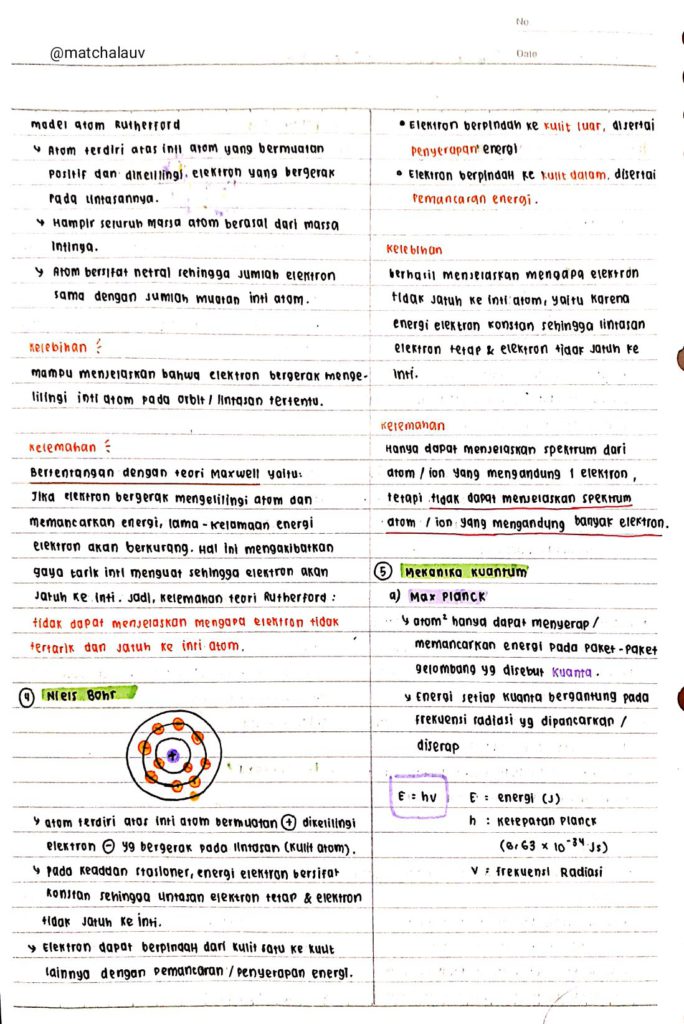 No
@matchalauv
Date
model atom Rutherford
↘ Atom terdiri atas inti atom yang bermuatan
positif dan dikelilingi elektron yang bergerak
pada lintasannya.
↘ Hampir seluruh massa atom berasal dari massa
intinya.
↘ Atom bersifat netral sehingga jumlah elektron
sama dengan jumlah muatan inti atom.
Kelebihan :
mampu menjelaskan bahwa elektron bergerak menge-
lilingi inti atom pada orbit / lintasan tertentu.
Kelemahan :
Bertentangan dengan teori Maxwell yaitu:
Jika elektron bergerak mengelilingi atom dan
memancarkan energi, lama-kelamaan energi
elektron akan berkurang. Hal ini mengakibatkan
gaya tarik inti menguat sehingga elektron akan
jatuh ke inti. Jadi, kelemahan teori Rutherford :
tidak dapat menjelaskan mengapa elektron tidak
tertarik dan jatuh ke inti atom.
④ Niels Bohr
+
↘ atom terdiri atas inti atom bermuatan ⊕ dikelilingi
elektron ⊖ yg bergerak pada lintasan (kulit atom).
↘ pada keadaan stasioner, energi elektron bersifat
konstan sehingga lintasan elektron tetap & elektron
tidak jatuh ke inti.
↘ Elektron dapat berpindah dari kulit satu ke kulit
lainnya dengan pemancaran / penyerapan energi.
• Elektron berpindah ke kulit luar, disertai
penyerapan energi
• Elektron berpindah ke kulit dalam, disertai
pemancaran energi.
Kelebihan
berhasil menjelaskan mengapa elektron
tidak jatuh ke inti atom, yaitu karena
energi elektron konstan sehingga lintasan
elektron tetap & elektron tidak jatuh ke
inti.
Kelemahan
Hanya dapat menjelaskan spektrum dari
atom / ion yang mengandung 1 elektron,
tetapi tidak dapat menjelaskan spektrum
atom / ion yang mengandung banyak elektron.
⑤ Mekanika Kuantum
a) Max Planck
↘ atom² hanya dapat menyerap /
memancarkan energi pada paket-paket
gelombang yg disebut kuanta.
↘ Energi setiap kuanta bergantung pada
frekuensi radiasi yg dipancarkan /
diserap
E = hv
E : energi (J)
h : Ketepatan Planck
(6,63 x 10⁻³⁴ Js)
V = frekuensi Radiasi